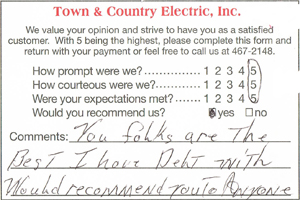 Town & Country Electric, Inc.
We value your opinion and strive to have you as a satisfied
customer. With 5 being the highest, please complete this form and
return with your payment or feel free to call us at 467-2148.
How prompt were we?............... 1 2 3 4 5
How courteous were we?.......... 1 2 3 4 5
Were your expectations met?...... 1 2 3 4 5
Would you recommend us? yes □no
Comments: You folks are The
Best I have Delt with
Would recommend you To Anyone